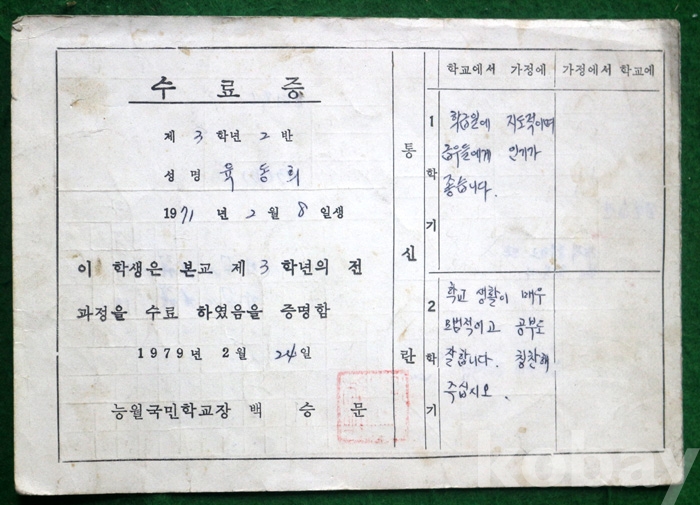 수 료 증
제 3 학년 2 반
성 명 육 동 희
1971 년 2 월 8 일생
이 학생은 본교 제 3 학년의 전
과정을 수료 하였음을 증명함
1979년 2월 24일
능월국민학교장 백 승 문
통 신 란
학교에서 가정에
가정에서 학교에
1 학 기
학급일에 지도적이며
급우들에게 인기가
좋습니다.
2 학 기
학교 생활이 매우
모범적이고 공부도
잘합니다. 칭찬해
주십시오.
kobay